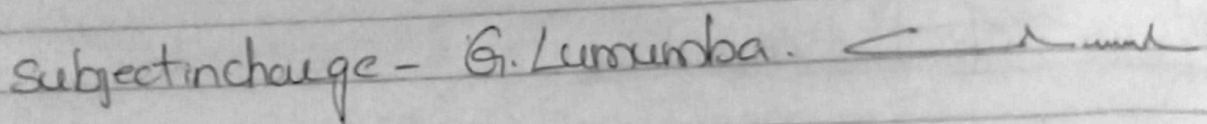 Subjectincharge - G. Lumumba.